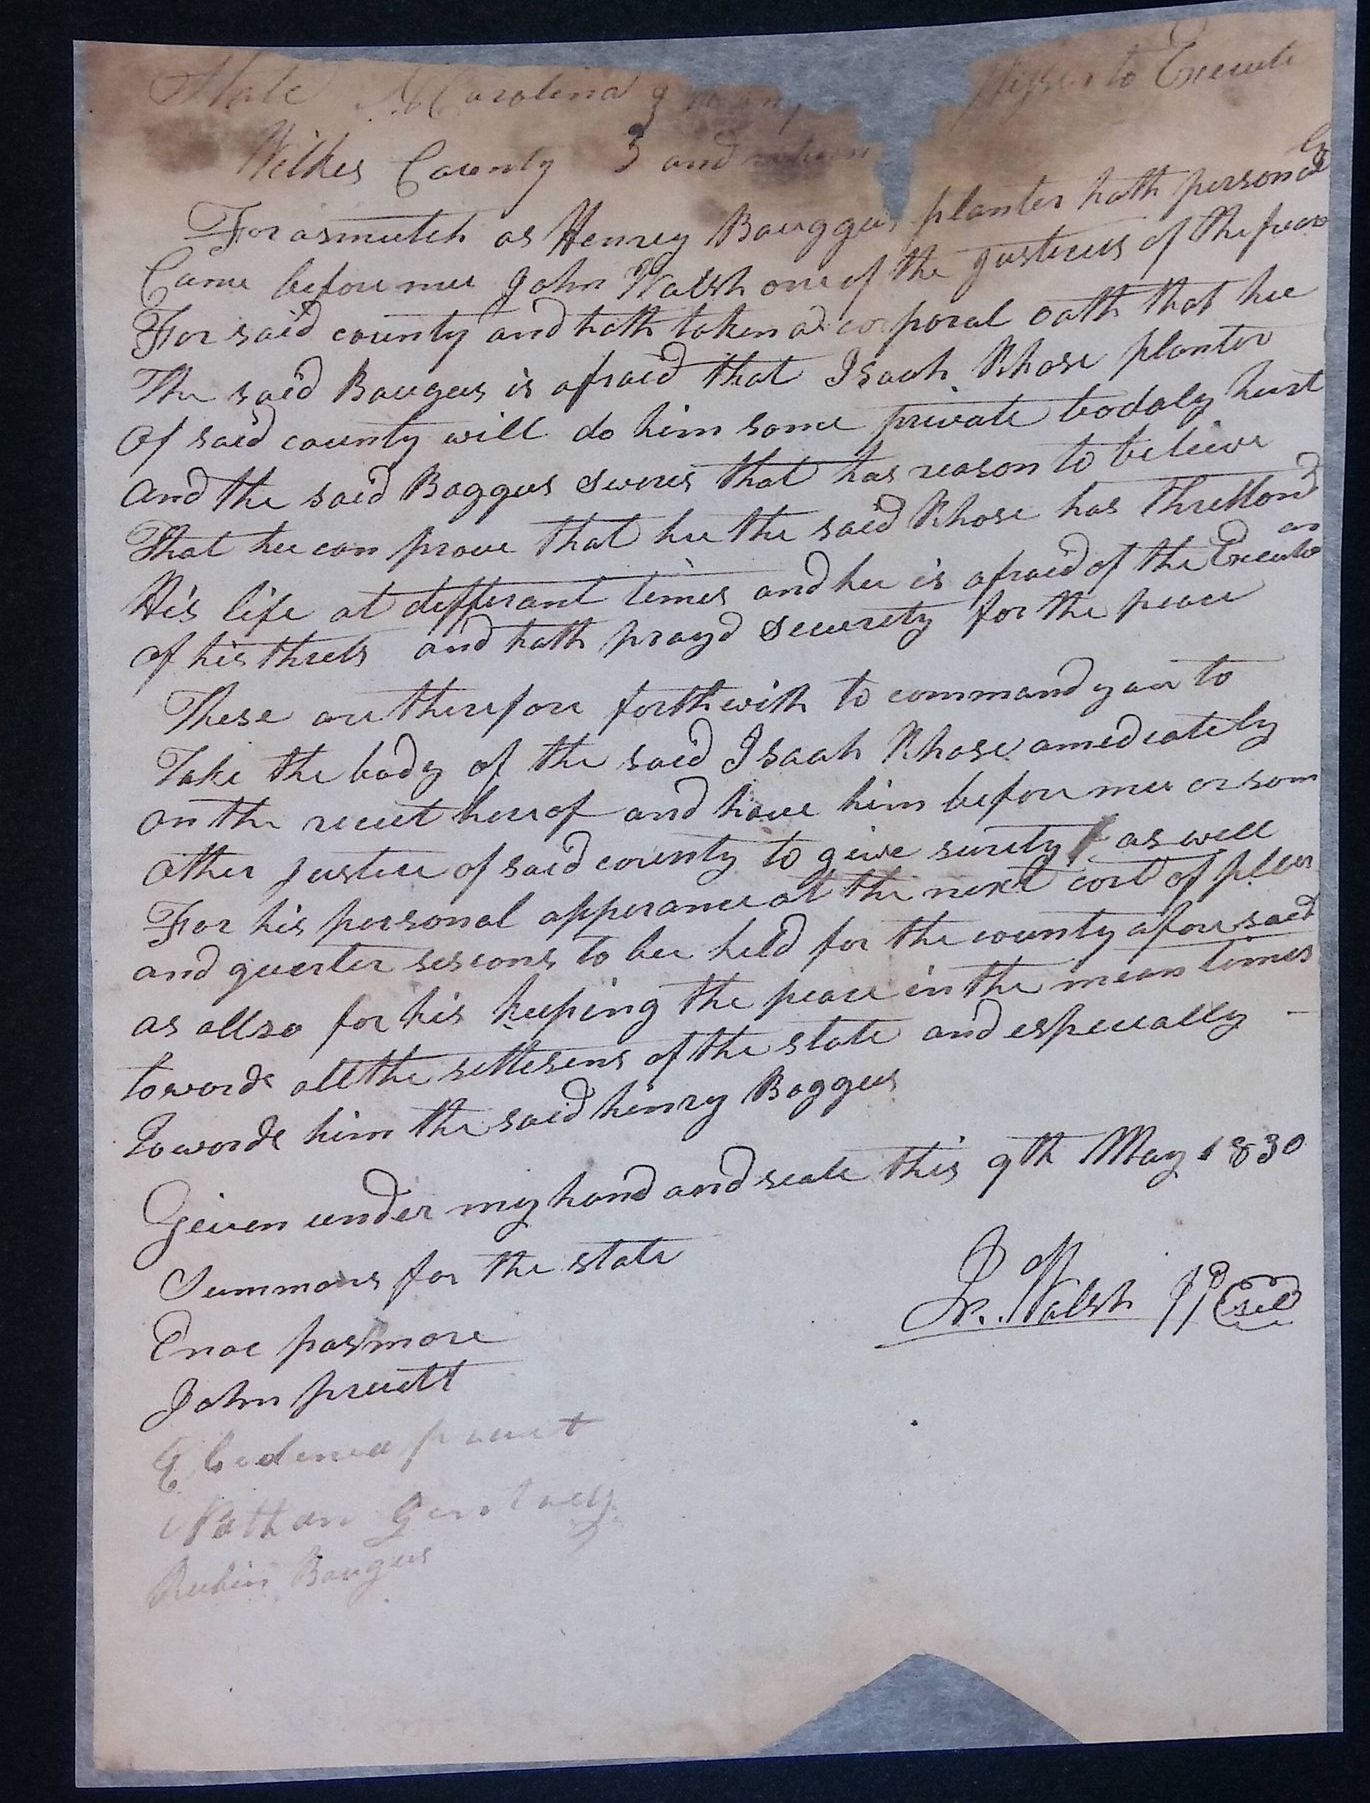 State N Carolina to Execute
Wilkes County and return
Forasmutch as Henry Bauggus planter hath personaly
Came before mee John Walsh one of the justices of the peace
For said county and hath taken a corporal oath that hee
The said Baugus is afraid that Isaah Rhose planter
of said county will do him some private bodaly hurt
and the said Baggus swers that has reason to believe
That hee can prove that hee the said Rhose has threttond
His life at differant times and hee is afraid of the Execution
of his threts and hath prayd security for the peace
These are therefore forthwith to command you to
Take the body of the said Isaah Rhose amediately
on the receit hereof and have him before mee or som
other justice of said county to give surity as well
For his personal apperance at the next cort of pleas
and quarter sesions to bee held for the county afore said
as allso for his keeping the peace in the mean times
towards all the sittesens of the state and especially
Towards him the said henry Baggus
Given under my hand and seale this 9th May 1830
Jn. Walsh JP Seal
Summons for the state
Enoc pasmore
John pruett
pruet
Nathan
Rubin Baugus